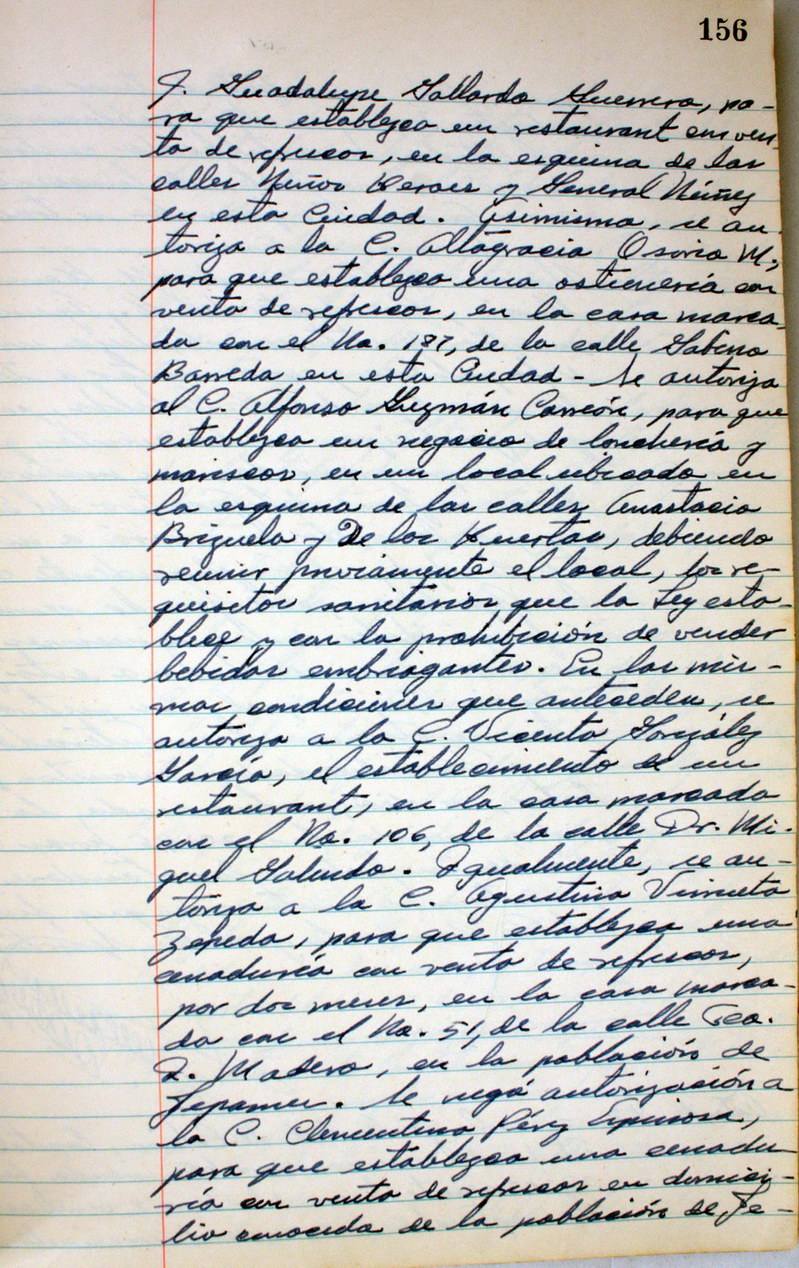 156
J. Guadalupe Gallardo Guerrero, pa-
ra que establezca un restaurant con ven-
ta de refrescos, en la esquina de las
calles Niños Heroes y General Núñez
en esta Ciudad. Asimismo, se au-
toriza a la C. Altagracia Osorio M.,
para que establezca una ostionería con
venta de refrescos, en la casa marca-
da con el No. 187, de la calle Gabino
Barreda en esta Ciudad - Se autoriza
al C. Alfonso Guzmán Carreón, para que
establezca un negocio de lonchería y
mariscos, en un local ubicado en
la esquina de las calles Anastacio
Brizuela y De los Huertas, debiendo
reunir previamente el local, los re-
quisitos sanitarios que la Ley esta-
blece y con la prohibición de vender
bebidas embriagantes. En las mis-
mas condiciones que anteceden, se
autoriza a la C. Vicenta González
García, el establecimiento de un
restaurant, en la casa marcada
con el No. 106, de la calle Dr. Mi-
guel Galindo. Igualmente, se au-
toriza a la C. Agustina Virrueta
Zepeda, para que establezca una
cenaduría con venta de refrescos,
por dos meses, en la casa marca-
da con el No. 51, de la calle Fco.
I. Madero, en la población de
Tepames. Se negó autorización a
la C. Clementina Pérez Espinosa,
para que establezca una cenadu-
ría con venta de refrescos en domici-
lio conocido de la población de Te-